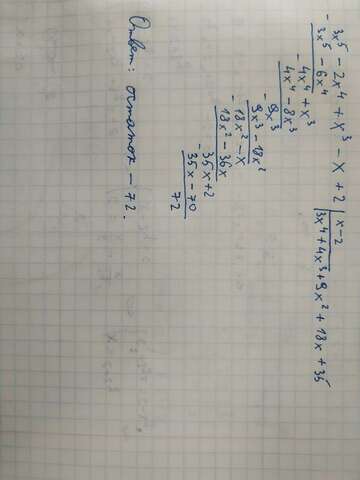 3x⁵ - 2x⁴ + x³ - x + 2 | x-2
- 3x⁵ - 6x⁴ | 3x⁴+4x³+9x²+18x+35
4x⁴ + x³
- 4x⁴ - 8x³
9x³
- 9x³ - 18x²
18x² - x
- 18x² - 36x
35x+2
- 35x - 70
72
Ответ: остаток - 72.